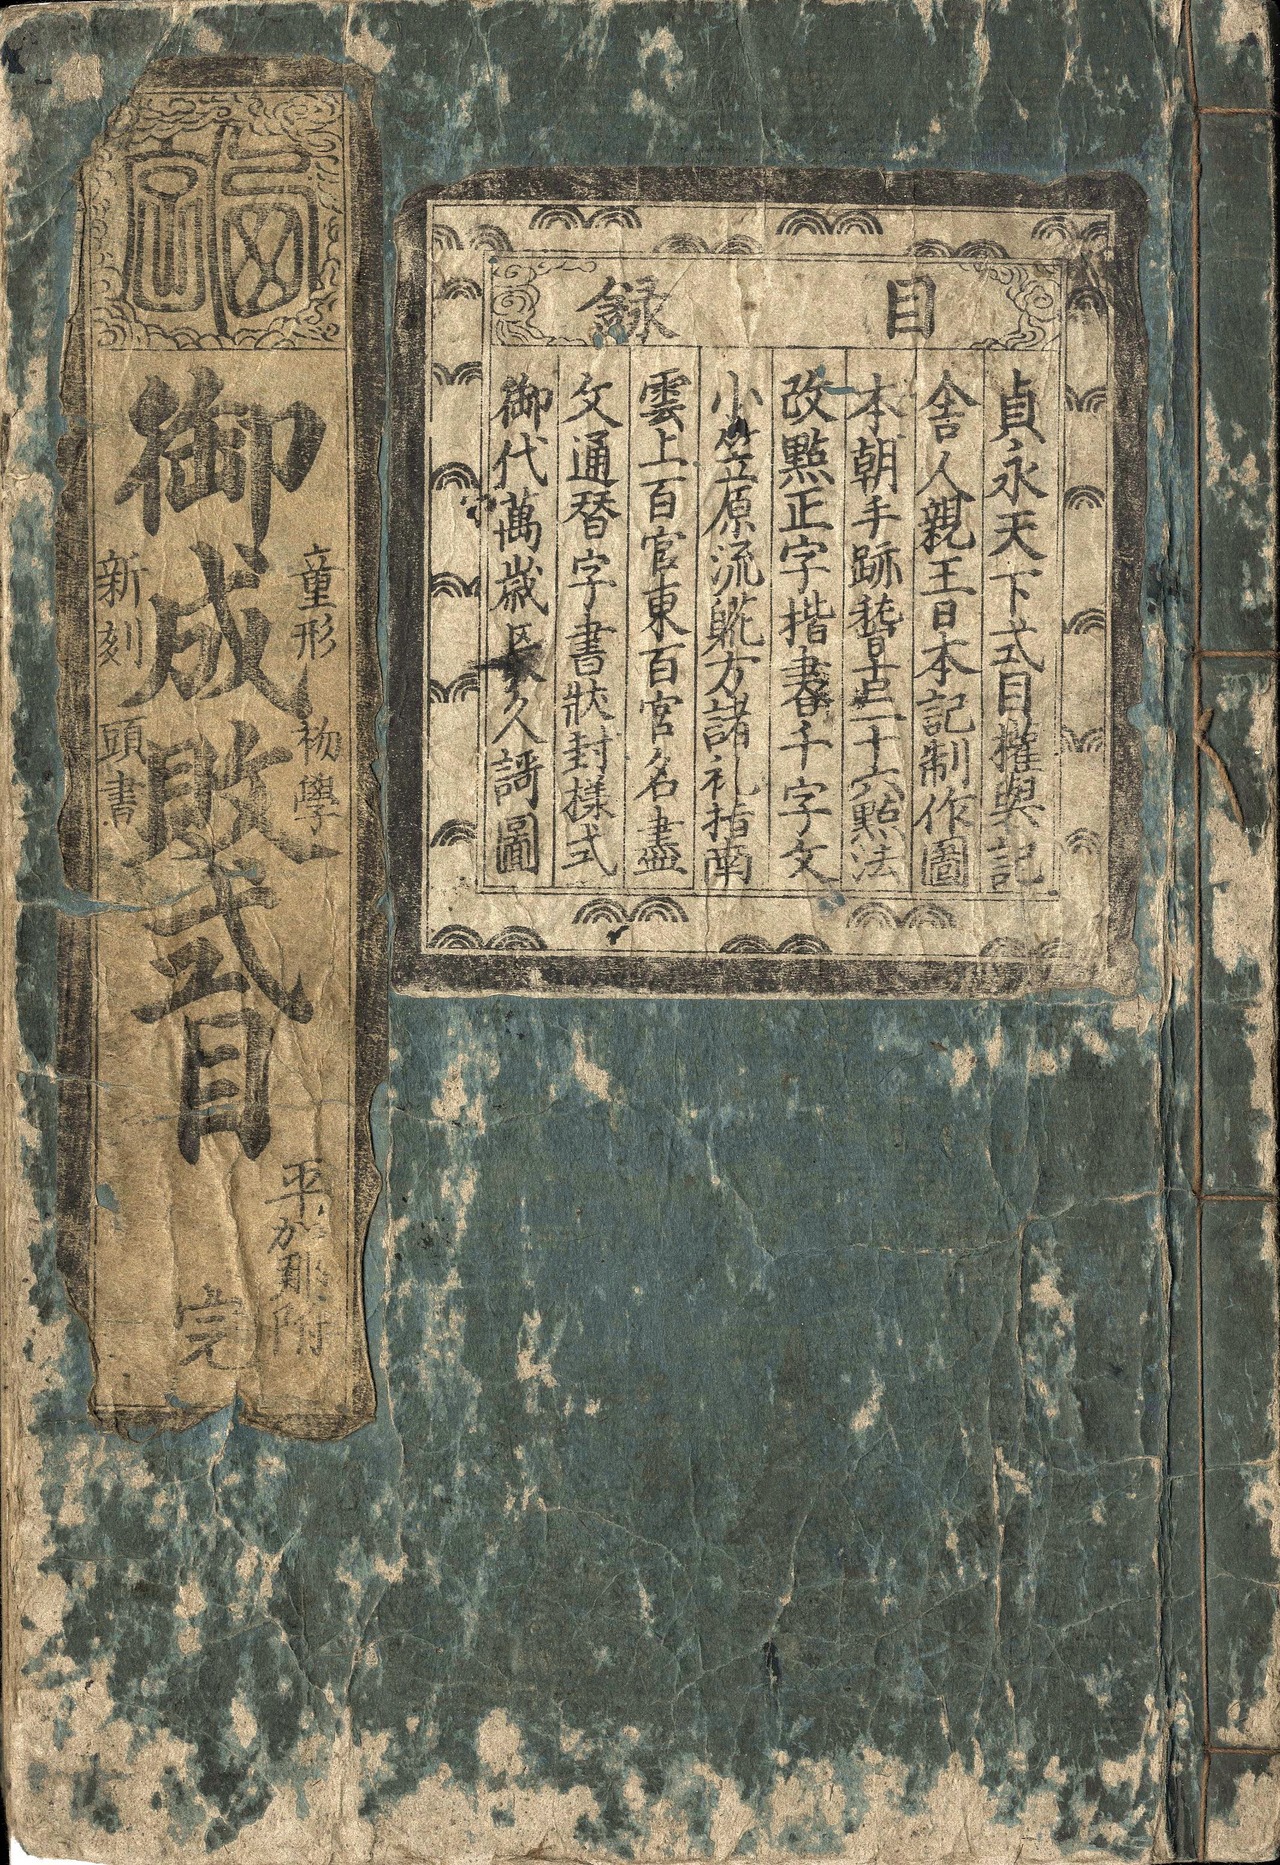 目録
貞永天下式目權輿記
舎人親王日本記制作圖
本朝手跡稽古二十六點法
改點正字楷書千字文
小笠原流躾方諸礼指南
雲上百官東百官名盡
文通替字書狀封樣式
御代萬歳長久謌圖
御成敗式目
童形
初學
新刻
頭書
平がな附
完